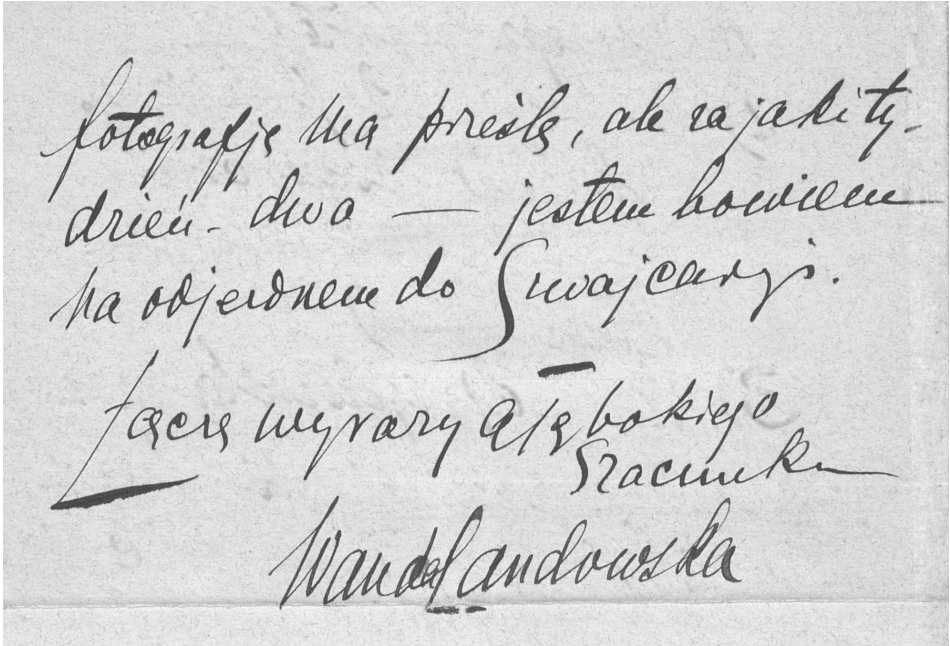 fotografję Ma prześlę, ale za jaki ty-
dzień - dwa — jestem bowiem
na odjezdnem do Szwajcaryi.
Łączę wyrazy głębokiego
Szacunku
Wanda Landowska